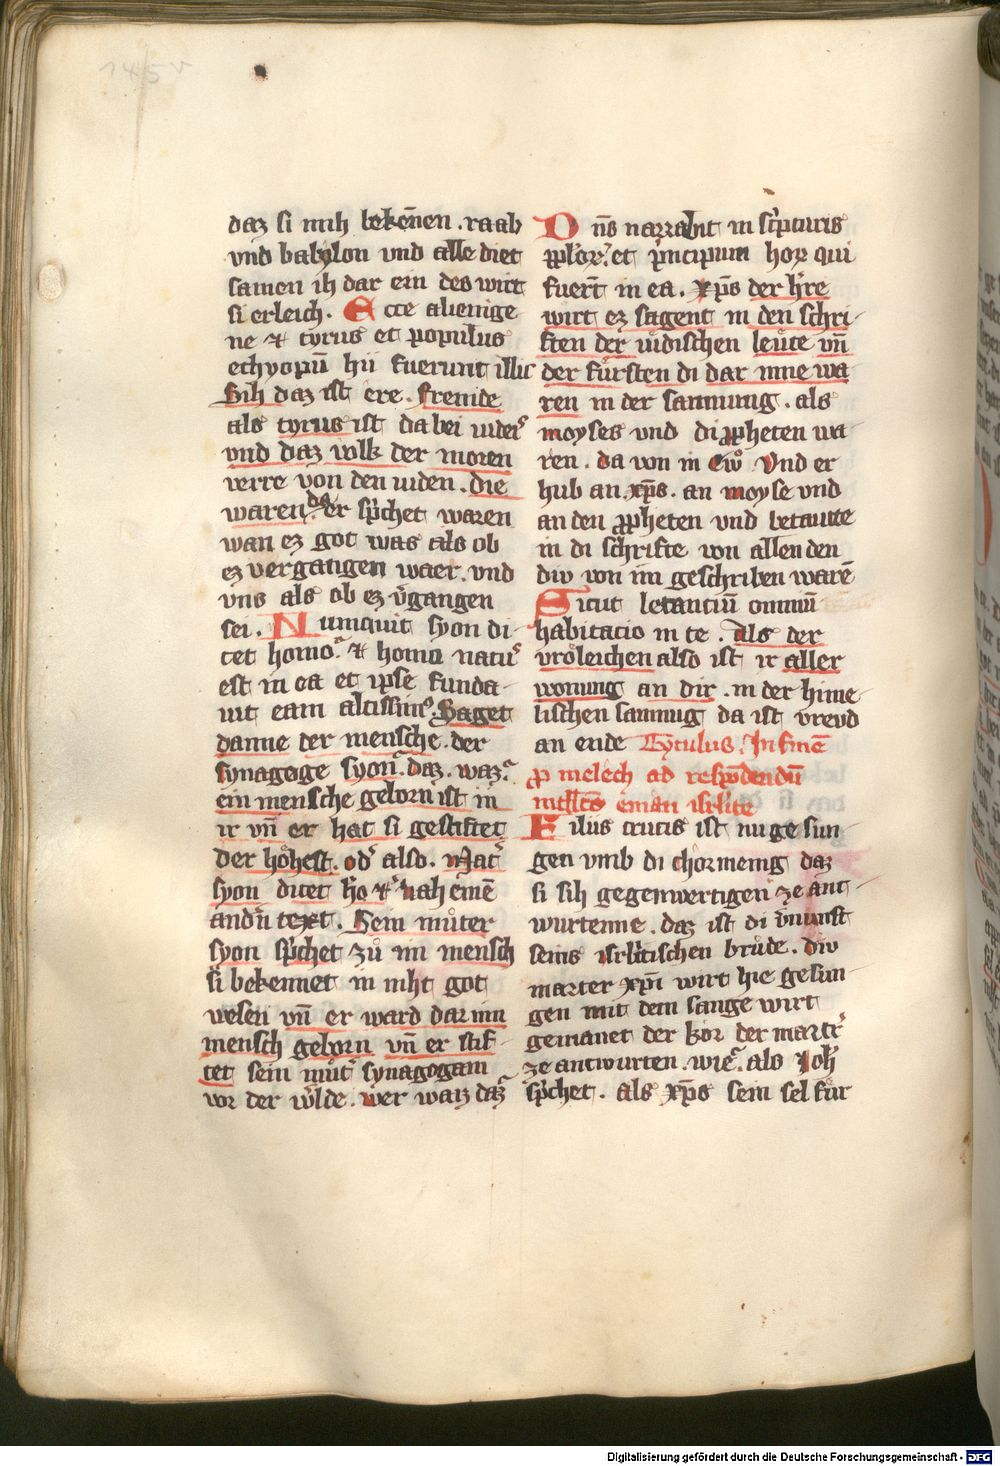 145v
daz si mih bekēnen . raab
vnd babylon vnd alle diet
samen ih dar ein des wirt
si erleich . Ecce alienige
ne ⁊ tyrus et populus
ethyopū hii fuerunt illic
Sih daz ist ere . fremde
als tyrus ist da bei iudeis
vnd daz volk der moren
verre von den iuden . die
waren da er sp̄chet waren
wan ez got was als ob
ez vergangen waer . vnd
vns als ob ez v̄gangen
sei . Numquit syon di-
cet homo . ⁊ homo natus
est in ea et ipse funda-
uit eam altissimus . Saget
danne der mensche . der
synagoge syon . daz . waz .
ein mensche geborn ist in
ir vn̄ er hat si gestiftet
der hoͤhest . od' also . Mat'
syon dicet ho ⁊ nah einē
and'n text . Sein muͦter
syon sp̄chet zuͦ im mensch
si bekennet in niht got
wesen vn̄ er ward dar inn
mensch geborn vn̄ er stif-
tet sein muͦt' synagogam
vor der w'lde . wer waiz daz
Dn̄s narrabit in sc'pturis
pp̄lor' et p'ncipum hor' qui
fuer̄t in ea . xp̄s der h're
wirt ez sagent in den schri-
ften der iudischen leute vn̄
der fuͤrsten di dar inne wa
ren in der samnung . als
moyses vnd di pp̄heten wa-
ren . da von in Ew̄o Vnd er
hub an xp̄s . an moyse vnd
an den pp̄heten vnd betautte
in di schrifte von allen den
div von im geschriben warē
Sicut letantiū omniū
habitacio in te . Als der
vroͤleichen also ist ir aller
wonung an dir . in der hime-
lischen samnug da ist vrevd
an ende Tytulus . In finē
p̄ melech ad respōdendū
intll'cs eman isrl'ite
Filius crucis ist nu gesun-
gen vmb di chormenig daz
si sih gegenwertigen ze ant-
wurtenne . daz ist di v'nunst
seins isrl'itischen bruͦde . div
marter xp̄i wirt hie gesun-
gen mit dem sange wirt
gemanet der kor der martr'
ze antwurten . wie . als Joh'
sp̄chet . als xp̄s sein sel fuͤr
Digitalisierung gefördert durch die Deutsche Forschungsgemeinschaft - DFG